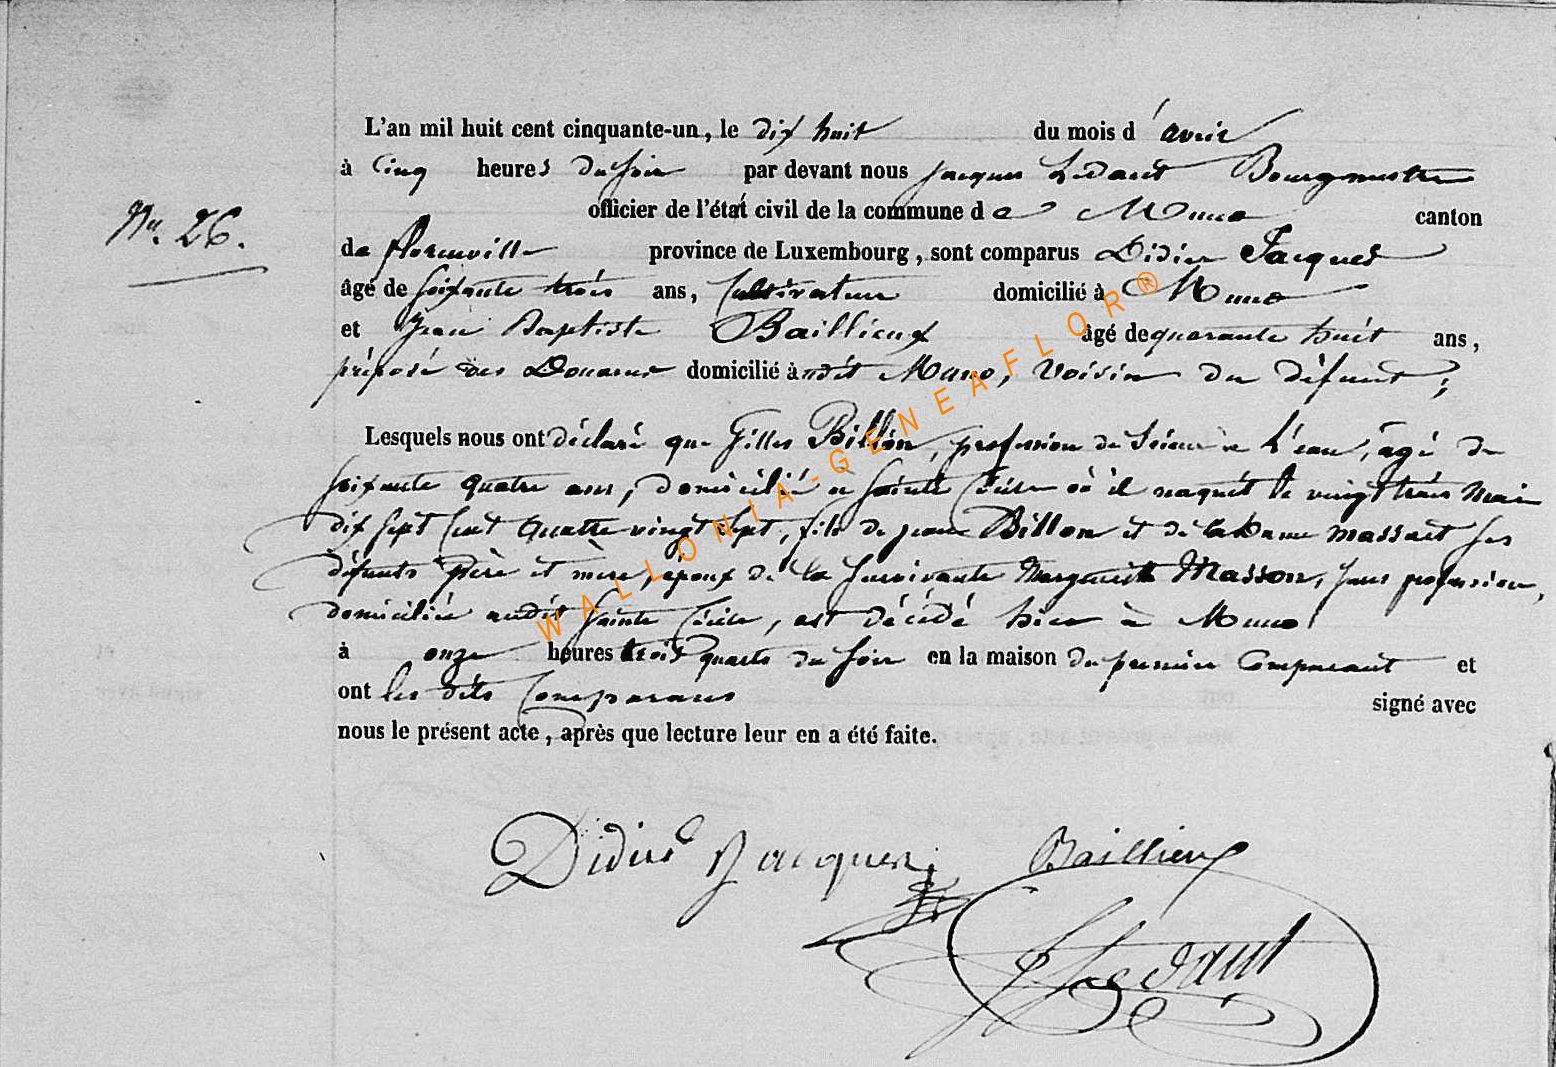 L'an mil huit cent cinquante-un, le dix huit du mois d'avril
à Cinq heures du soir par devant nous Jacques Ledant Bourgmestre
officier de l'état civil de la commune de Muno canton
No. 26.
de florenville province de Luxembourg, sont comparus Didier Jacques
âgé de soixante trois ans, Cultivateur domicilié à Muno
et Jean Baptiste Baillieux âgé de quarante huit ans,
préposé des Douanes domicilié audit Muno, voisin du défunt;
Lesquels nous ont déclaré que Gilles Billon, profession de Scieur à l'eau, âgé de
soixante quatre ans, domicilié à Sainte Cécile où il naquit le vingt trois Mai
dix sept Cent quatre vingt sept, fils de jean Billon et de Massart ses
défunts père et mère, époux de la survivante Marguerite Masson, sans profession,
domiciliée audit Sainte Cécile, est décédé hier à Muno
à onze heures trois quarts du soir en la maison du premier Comparant et
ont les dits Comparans signé avec
nous le présent acte, après que lecture leur en a été faite.
Didier Jacques Baillieux
J Ledant
WALLONIA-GENEAFLOR®